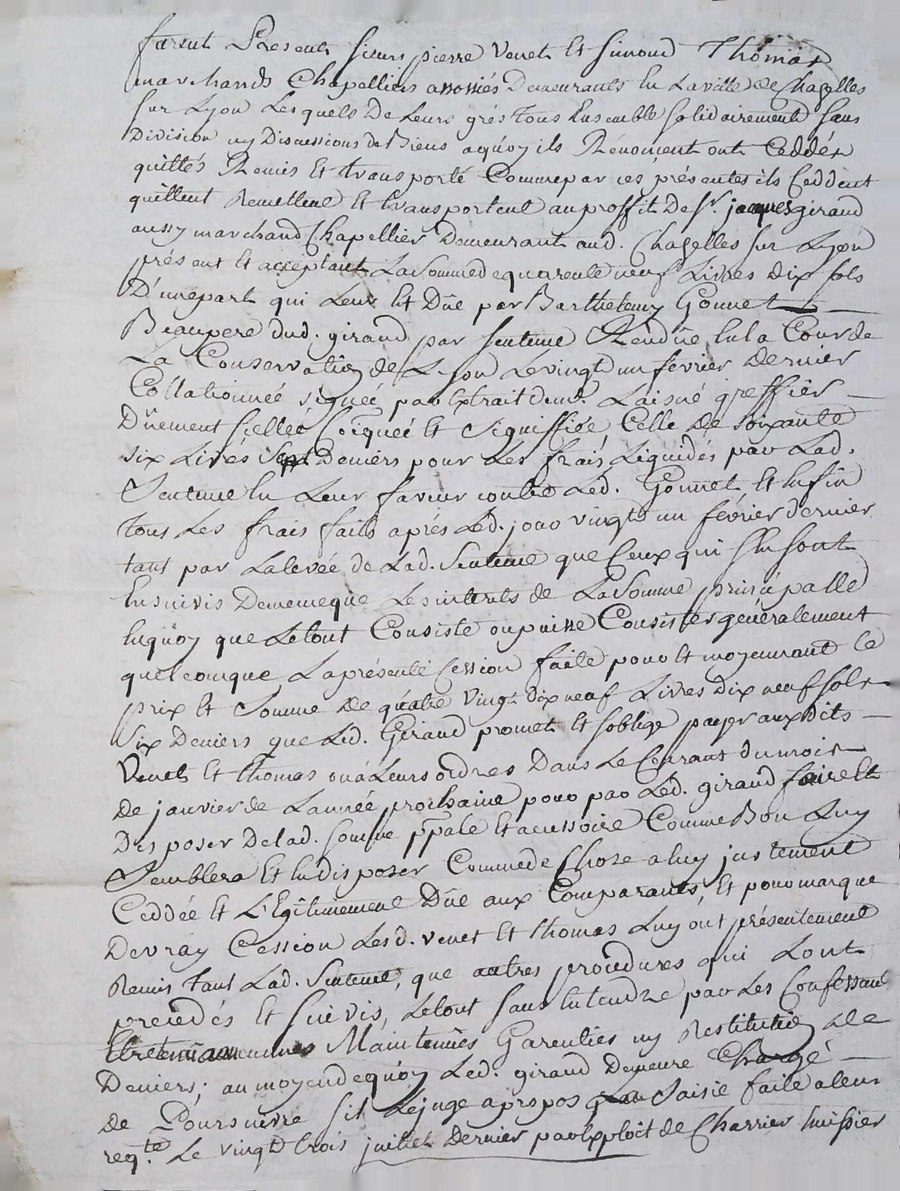 furent Presents sieurs pierre Venet Et Simond Thomas
marchands Chapelliers assosiés Demeurants En La ville de Chazelles
sur Lyon Lesquels De Leurs grés tous Ensemble solidairement sans
Division ny Discussions de Biens aquoy ils Rénoncent ont Ceddés
quittés Remis Et transporté Comme par ces présentes ils Ceddent
quittent Remettent Et transportent au proffit De Sr. jacques giraud
aussy marchand Chapellier Demeurant aud. Chazelles sur Lyon
présent Et acceptant La Somme de quarente neuf Livres Dix sols
D'une part qui Leur Est Düe par Barthelemy Gonnet
Beaupere dud. giraud par Sentence Rendüe En la Cour de
La Conservation de Lyon Le vingt un février Dernier
Collationnée signée par Extrait Laisné greffier
Düement scellée Et Signiffiée Celle De soixante
six Livres sept Deniers pour Les frais Liquidés par Lad.
Sentence En Leur faveur contre Led. Gonnet Et Enfin
tous Les frais faits aprés Led. jour vingt un février dernier
tant par La levée de Lad. Sentence que Ceux qui s'En sont
Ensuivis De meme que Les interets de La Somme principalle
En quoy que Le tout Consiste ou puisse Consister généralement
quelconque La présente Cession faite pour Et moyennant Le
prix Et Somme De quatre vingt dix neuf Livres Dix neuf sols
Six Deniers que Led. Giraud promet Et soblige payer auxdits
Venet Et thomas ou à Leurs ordres Dans Le Courant du mois
De janvier de L'année prochaine pour par Led. giraud faire Et
Disposer De lad. somme pp̃ale Et accessoire Comme Bon Luy
Semblera Et En disposer Comme de Chose a luy justement
Ceddée Et L'Egitimement Düe aux Comparants, Et pour marque
De vray Cession Lesd. venet Et thomas Luy ont présentement
Remis tant Lad. Sentence, que autres procédures qui L'ont
precédés Et suivis, Le tout sans Entendre par Les Confessants
Etre tenus aucunnes Maintenües Garenties ny Restitution De
Deniers; au moyen de quoy Led. giraud Demeure Chargé
De Poursuivre sil Le juge apropos La Saisie faite a leur
reqte. Le vingt trois juillet Dernier par Exploit de Charrier huissier